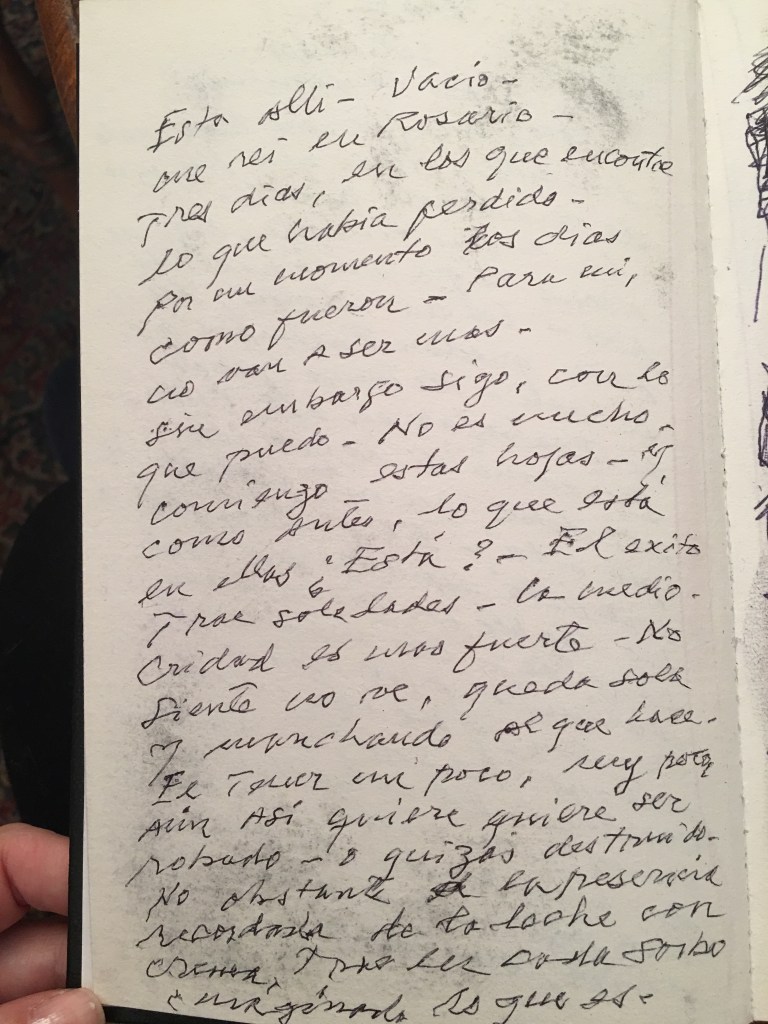 Esta alli - Vacio -
me rei en Rosario -
Tres dias, en los que encontre
lo que habia perdido -
Por un momento los dias
como fueron - Para mi,
no van a ser mas -
sin embargo sigo, con lo
que puedo - No es mucho.
comienzo estas hojas - y
como antes, lo que está
en ellas ¿Está? - El exito
Trae soledades - la medio-
cridad es mas fuerte - No
siente no ve, queda sola
y manchando al que hace.
El Tener un poco, muy poco
aún Asi quiere quiere ser
robado - o quizás destruido -
No obstante la presencia
recordada de la leche con
crema, Trae en cada sorbo
imaginado lo que es -